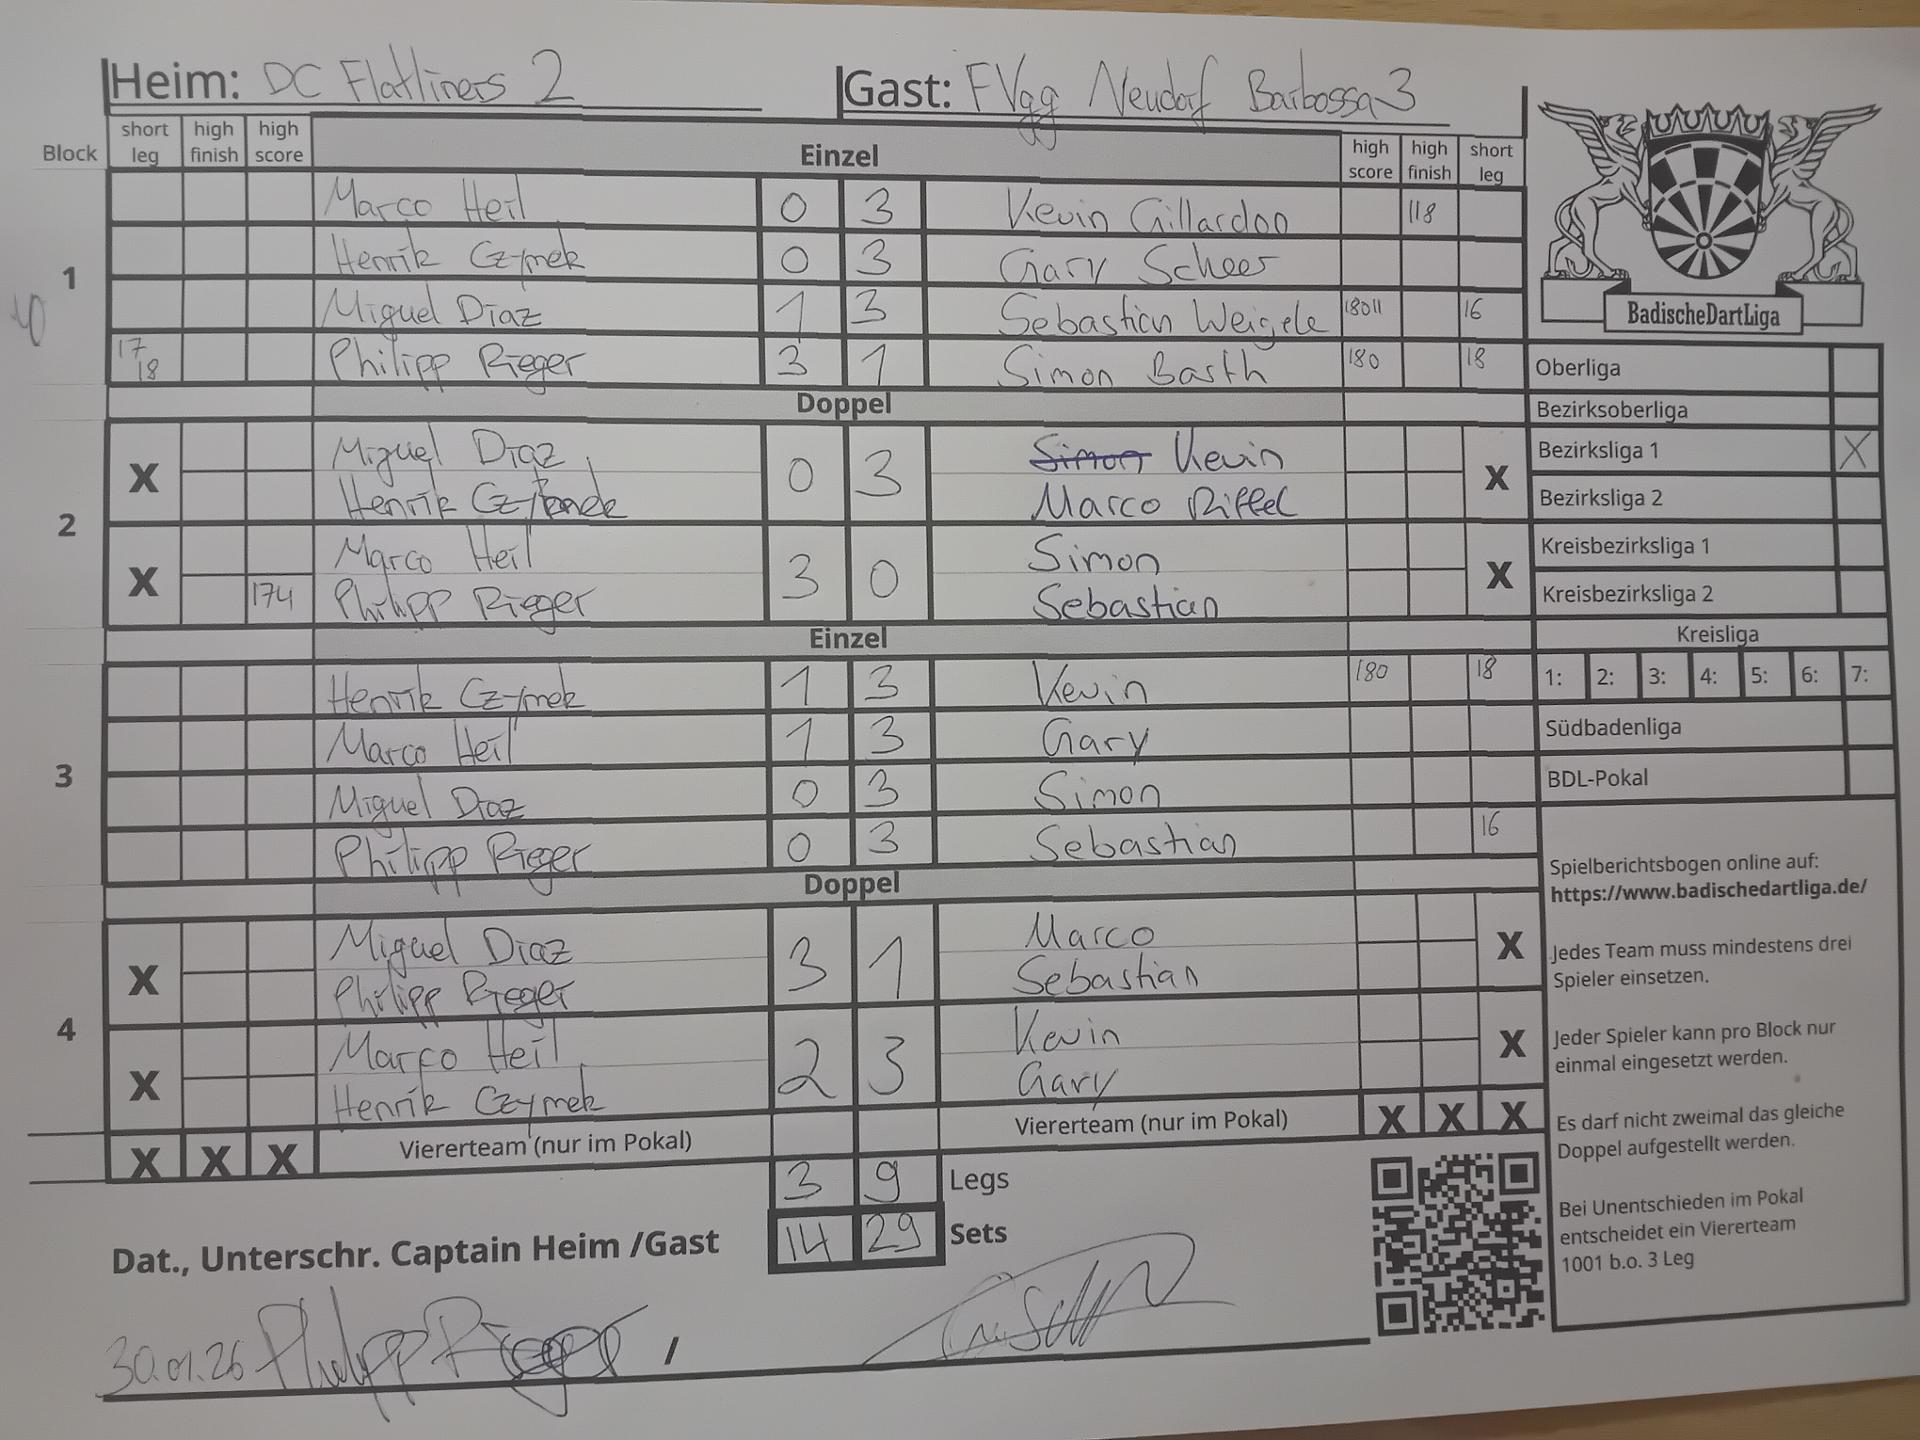 Heim: DC Flatliners 2 Gast: FVgg Neudorf Barbossa 3
Block short leg high finish high score Einzel high score high finish short leg
1
Marco Heil 0 3 Kevin Gillardon 118
Henrik Czymek 0 3 Gary Scheer
Miguel Diaz 1 3 Sebastian Weigele 180 11 16
17 18 Philipp Rieger 3 1 Simon Barth 180 18
Doppel
2
X Miguel Diaz 0 3 Simon Kevin X
Henrik Marco Riffel
X Marco Heil 3 0 Simon X
174 Philipp Rieger Sebastian
Einzel
3
Henrik Czymek 1 3 Kevin 180 18
Marco Heil 1 3 Gary
Miguel Diaz 0 3 Simon
Philipp Rieger 0 3 Sebastian 16
Doppel
4
X Miguel Diaz 3 1 Marco X
Philipp Rieger Sebastian
X Marco Heil 2 3 Kevin X
Henrik Czymek Gary
X X X Viererteam (nur im Pokal) Viererteam (nur im Pokal) X X X
3 9 Legs
14 29 Sets
Dat., Unterschr. Captain Heim /Gast
30.01.26 Philipp Rieger /
BadischeDartLiga
Oberliga
Bezirksoberliga
Bezirksliga 1 X
Bezirksliga 2
Kreisbezirksliga 1
Kreisbezirksliga 2
Kreisliga
1: 2: 3: 4: 5: 6: 7:
Südbadenliga
BDL-Pokal
Spielberichtsbogen online auf:
https://www.badischedartliga.de/
Jedes Team muss mindestens drei
Spieler einsetzen.
Jeder Spieler kann pro Block nur
einmal eingesetzt werden.
Es darf nicht zweimal das gleiche
Doppel aufgestellt werden.
Bei Unentschieden im Pokal
entscheidet ein Viererteam
1001 b.o. 3 Leg